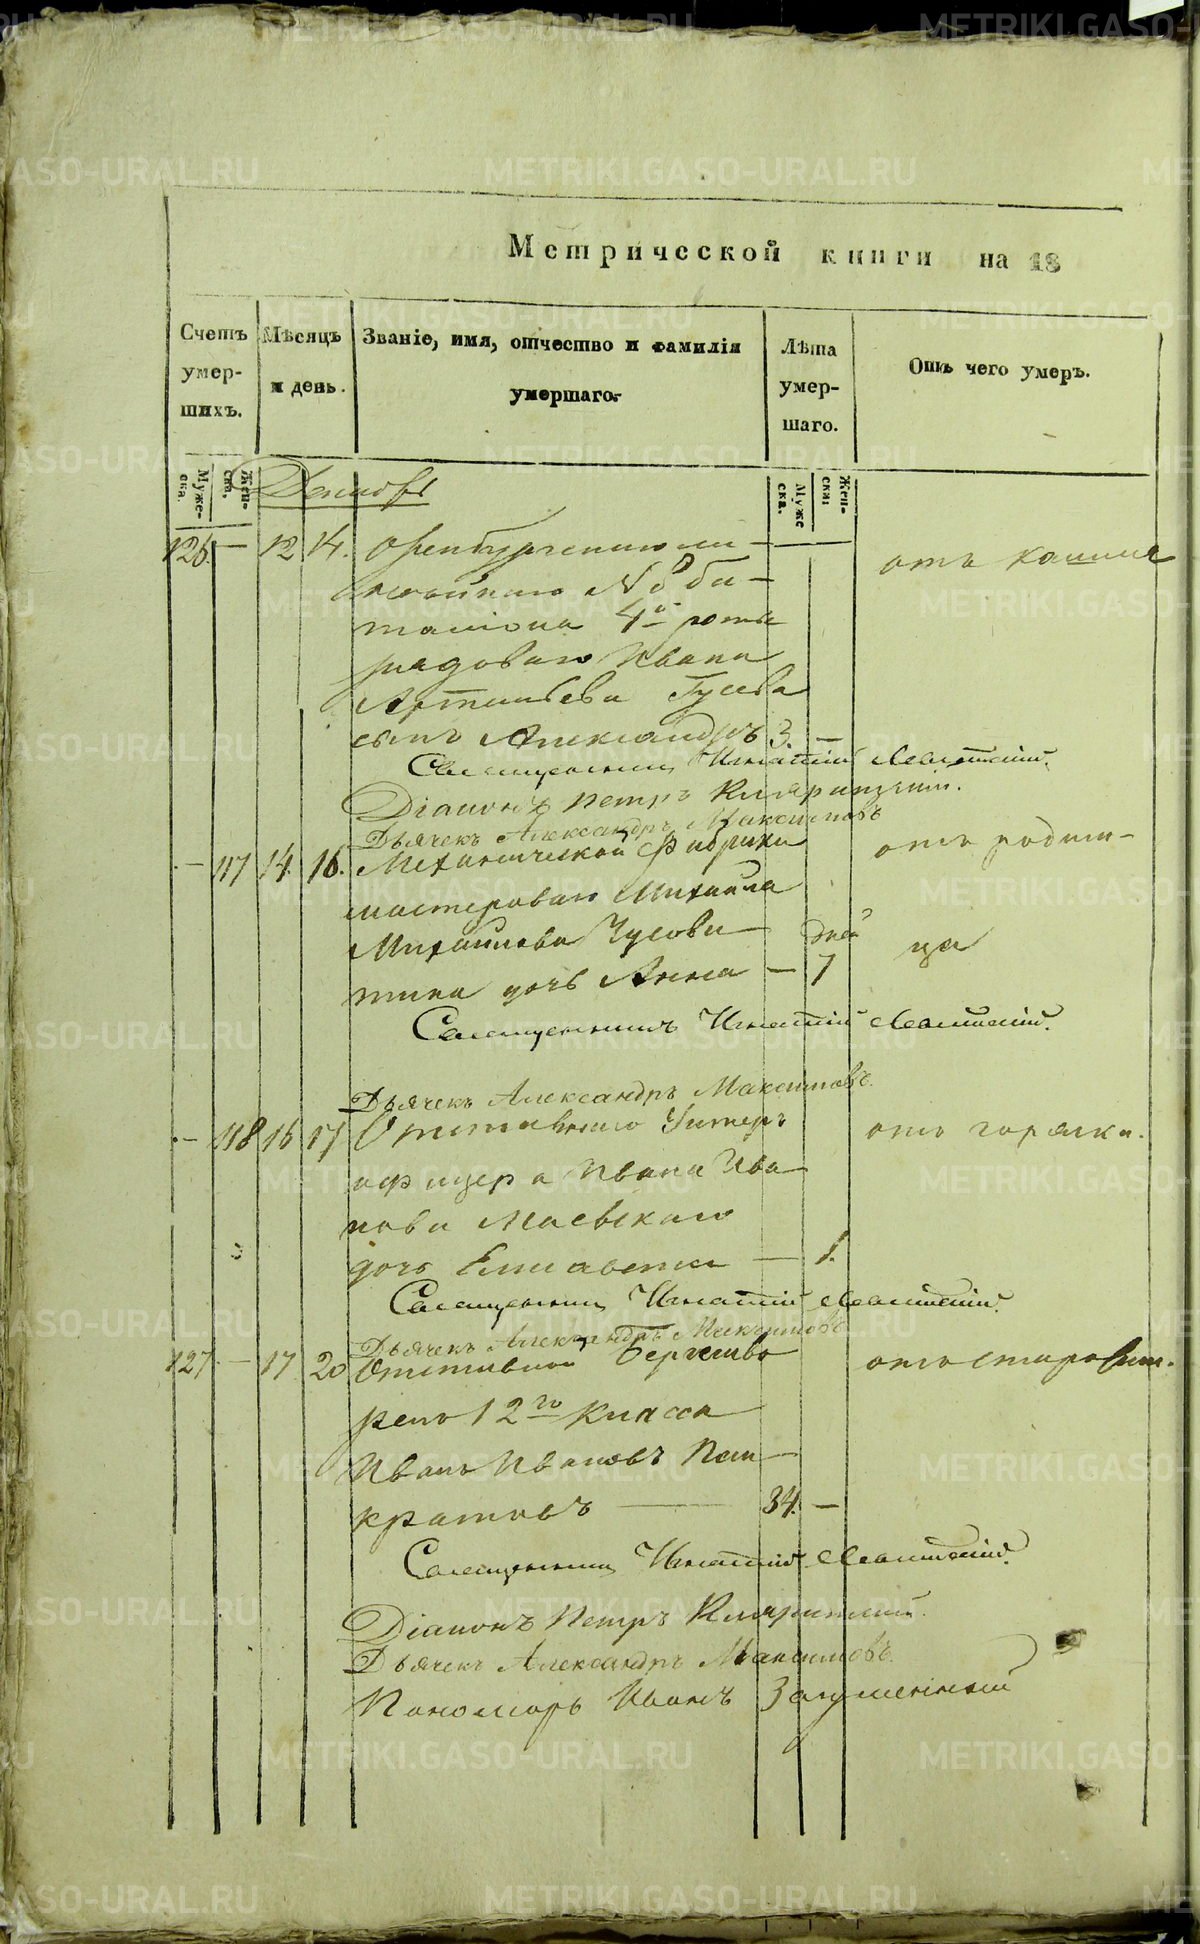 Метрической книги на 18
Счетъ умер-шихъ.
Мѣсяцъ и день.
Званіе, имя, отчество и фамилія умершаго.
Лѣта умер-шаго.
Отъ чего умеръ.
Муже-ска.
Жен-ска.
Муже ска.
Жен-ска:
Декабрь
126. — 12 14. Оренбургскаго ли-
нейнаго № 8 ба-
таліона 4й роты
рядоваго Ивана
Артемьева Гусева
сынъ Александръ 3. —
отъ кашля
Священникъ Игнатій
Діаконъ Петръ
Дьячекъ Александръ Максимовъ
— 117 14. 16. Механической фабрики
мастероваго Михаила
Михайлова Чусови-
тина дочь Анна — 7 дней
отъ родим-
ца
Священникъ Игнатій
Дьячекъ Александръ Максимовъ.
— 118 16 17 Отставнаго Унтеръ
офицера Ивана Ива
нова Маевскаго
дочь Елисавета — 1.
отъ горячки.
Священникъ Игнатій
Дьячекъ Александръ Максимовъ
127. — 17 20 Отставной Бергешво
ренъ 12го класса
Иванъ Ивановъ Пан-
кратовъ — 34. —
Священникъ Игнатій
Діаконъ Петръ
Дьячекъ Александръ Максимовъ.
Пономарь Иванъ
METRIKI.GASO-URAL.RU